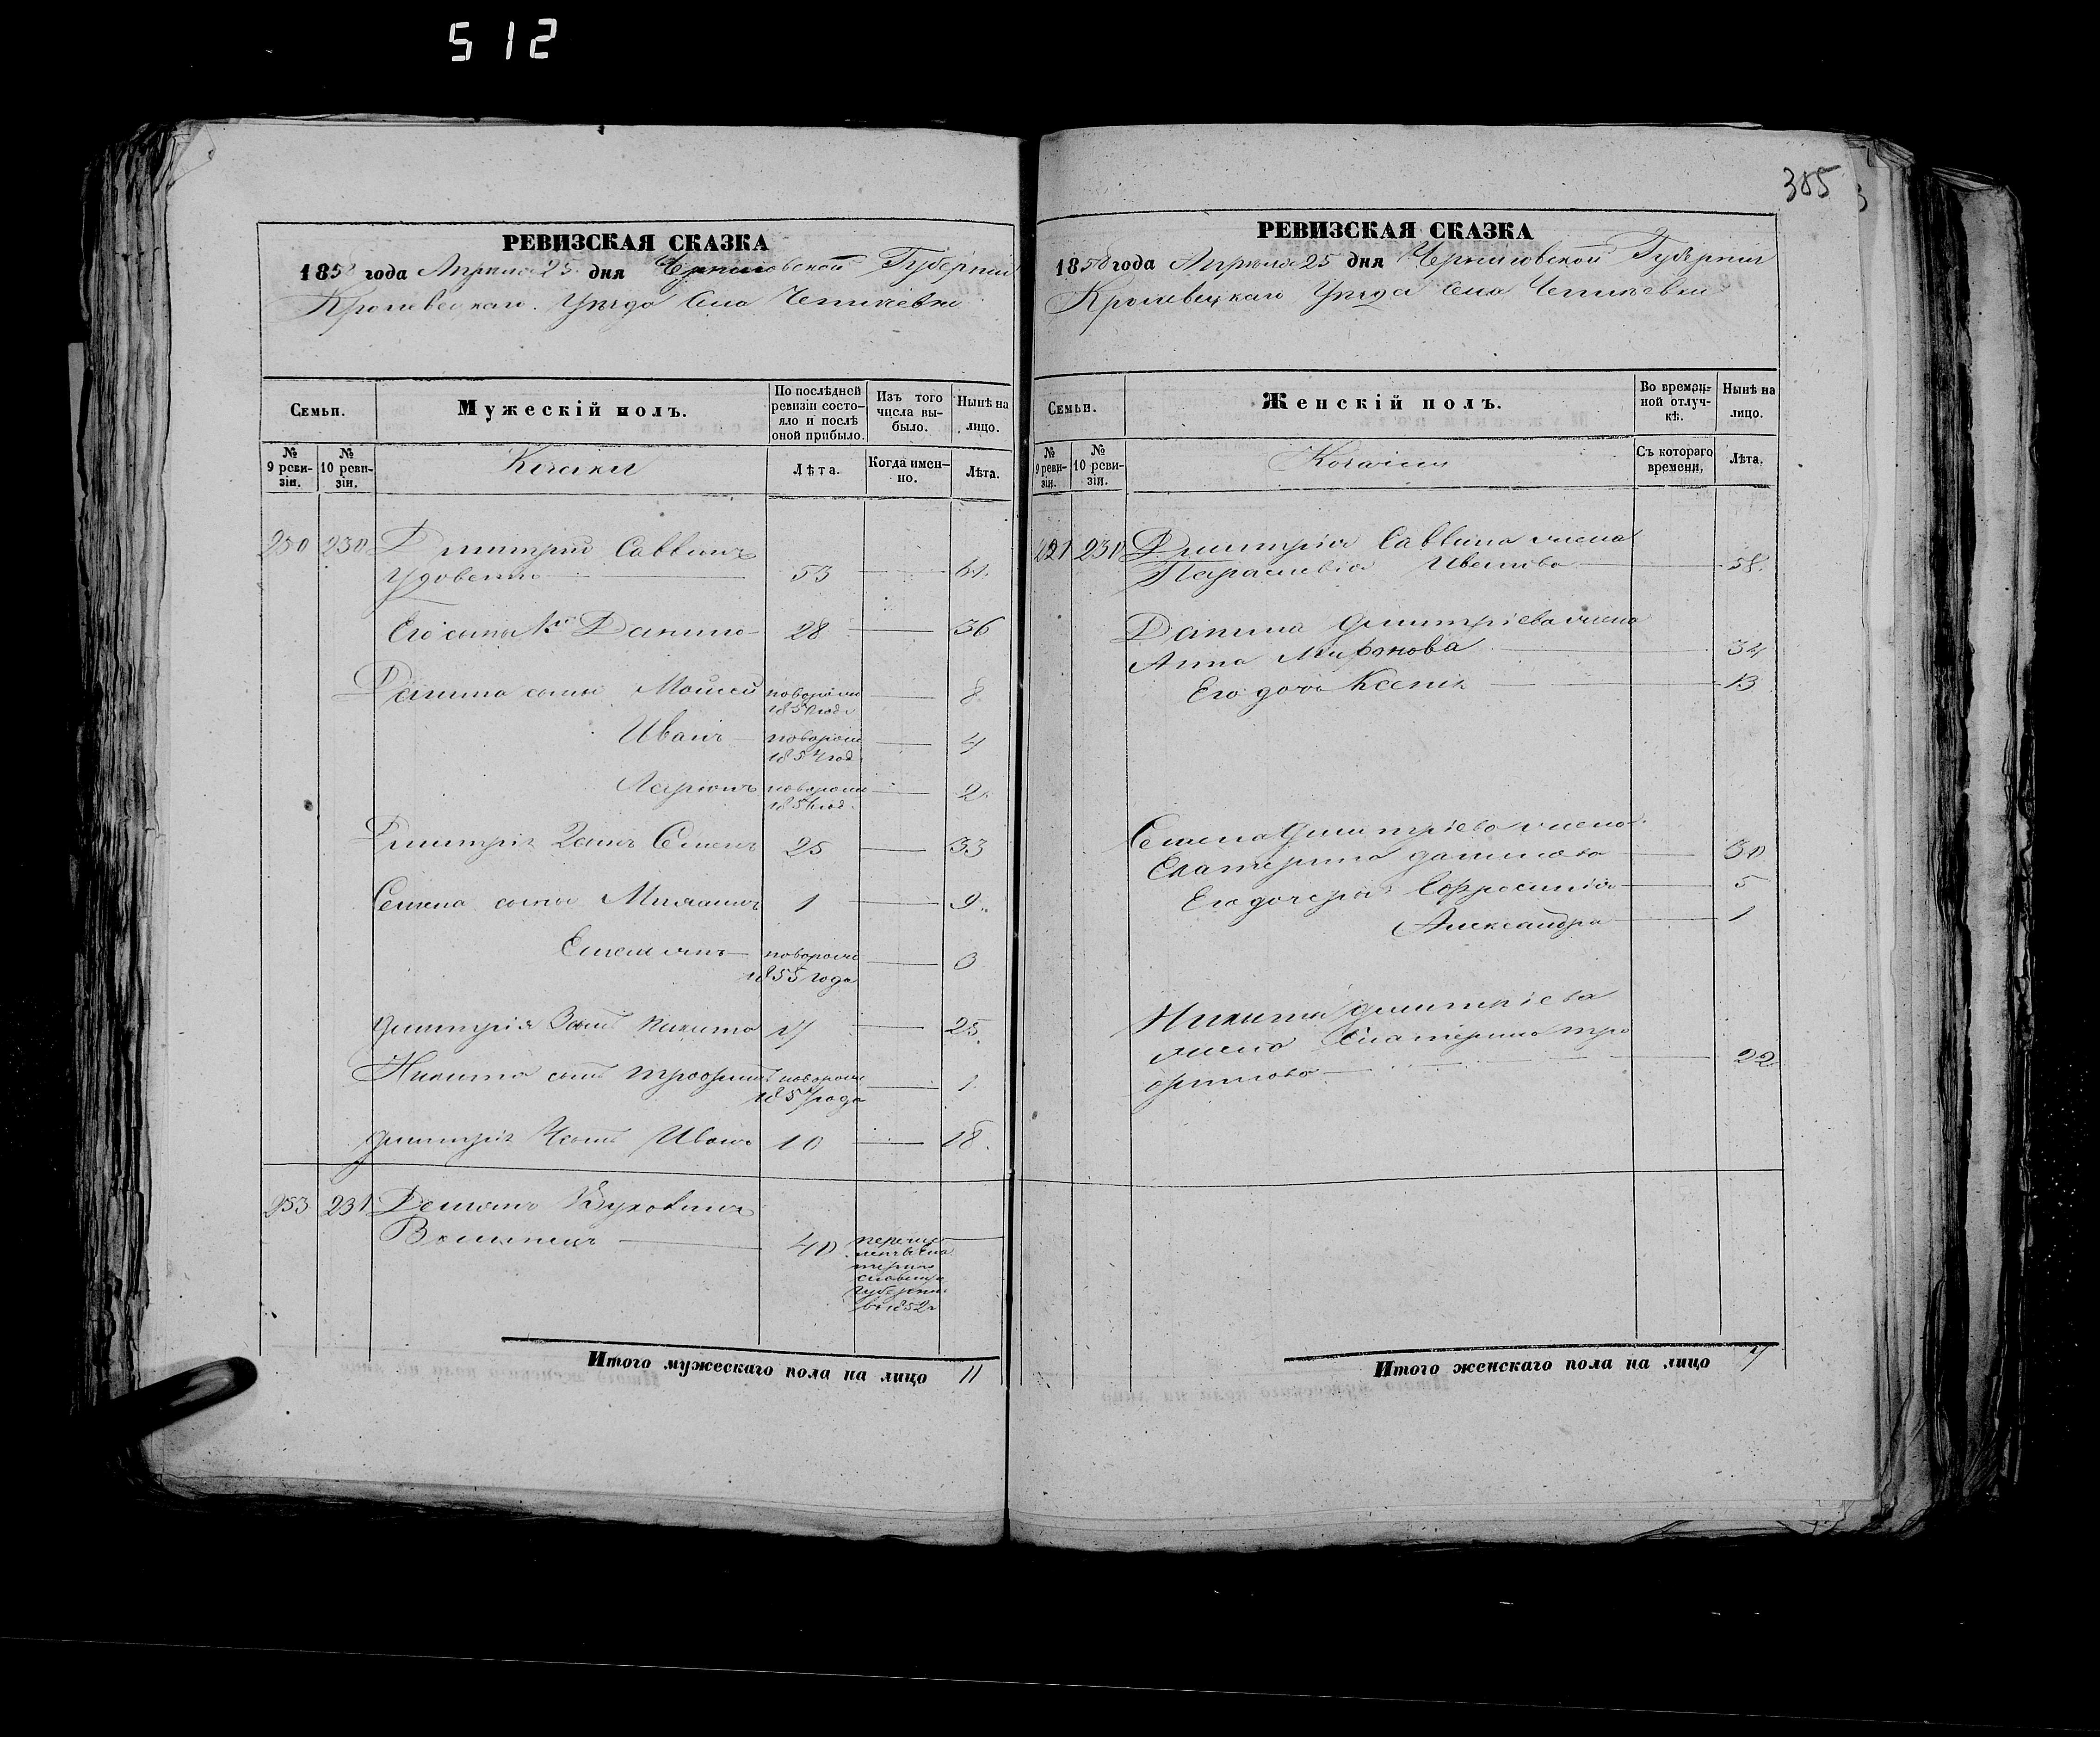 512
305
РЕВИЗСКАЯ СКАЗКА
1858 года Апреля 25 дня Черниговской Губернии
Кролевецкаго Уѣзда Села
Семьи.
Мужескій полъ.
По послѣдней ревизіи состо-
яло и послѣ оной прибыло.
Изъ того числа вы-
было.
Нынѣ на лицо.
№ 9 реви-
зіи.
№ 10 реви-
зіи.
Козаки
Лѣта.
Когда имен-
но.
Лѣта.
250 230 Дмитрій Саввинъ
Удовенко 53 61.
Его сынъ 1й Данило 28 36
Данила сыны Моисей новорож 1850 год. 8
Иванъ новорож 1854 год. 4
Ларіонъ новорож 1856 год. 2.
Дмитрія 2 сынъ Семенъ 25 33
Семена сыны 1 9.
Емельянъ новорож 1855 года 3
Дмитрія 3 сынъ Никита 17 25.
Никита сынъ Трофимъ новорож 1857 года 1.
Дмитрія 4 сынъ Иванъ 10 18.
253 231 Демьянъ
40 перечис
ленъ въ Ека
терино
славскую
губернію
въ 1852 г
Итого мужескаго пола на лицо 11
РЕВИЗСКАЯ СКАЗКА
1858 года Апреля 25 дня Черниговской Губернии
Кролевецкаго Уѣзда Села
Семьи.
Женскій полъ.
Во времен-
ной отлуч-
кѣ.
Нынѣ на лицо.
№ 9 реви-
зіи.
№ 10 реви-
зіи.
Козачки
Съ котораго времени.
Лѣта.
221 230 Дмитрія Саввина жена
Параскевія 58.
Данила Дмитріева жена
Анна Миронова 34
Его дочь Ксенія 13
Семена Дмитріева жена
Екатерина Данилова 30
Его дочери Ефросинія 5
Александра 1
Никиты Дмитріева
жена Екатерина Тро
фимова 22
Итого женскаго пола на лицо 7